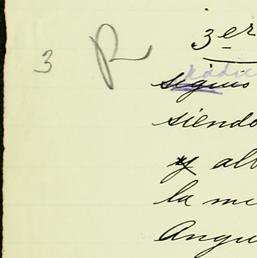 3 R 3er
siguió
siendo
y alb
la me
Angu